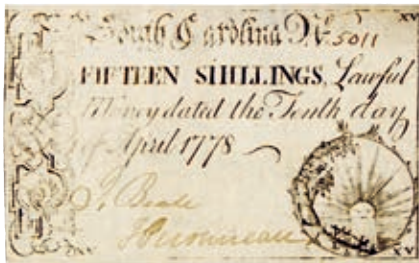 South Carolina Nº 5011
FIFTEEN SHILLINGS, Lawful
Money dated the Tenth day
of April 1778
J. Beale
XV
XV